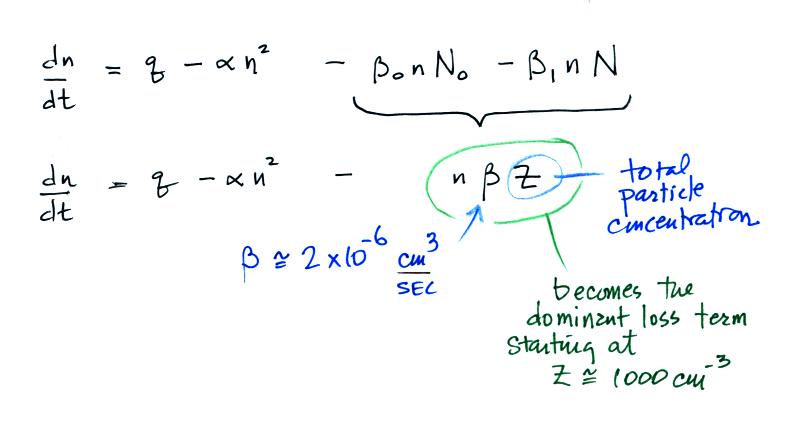 dn/dt = q - αn² - β₀nN₀ - β₁nN
dn/dt = q - αn² - nβZ
total
particle
cuncentration
β ≅ 2×10⁻⁶ cm³/SEC
becomes the
dominant loss term
starting at
Z ≅ 1000 cm⁻³